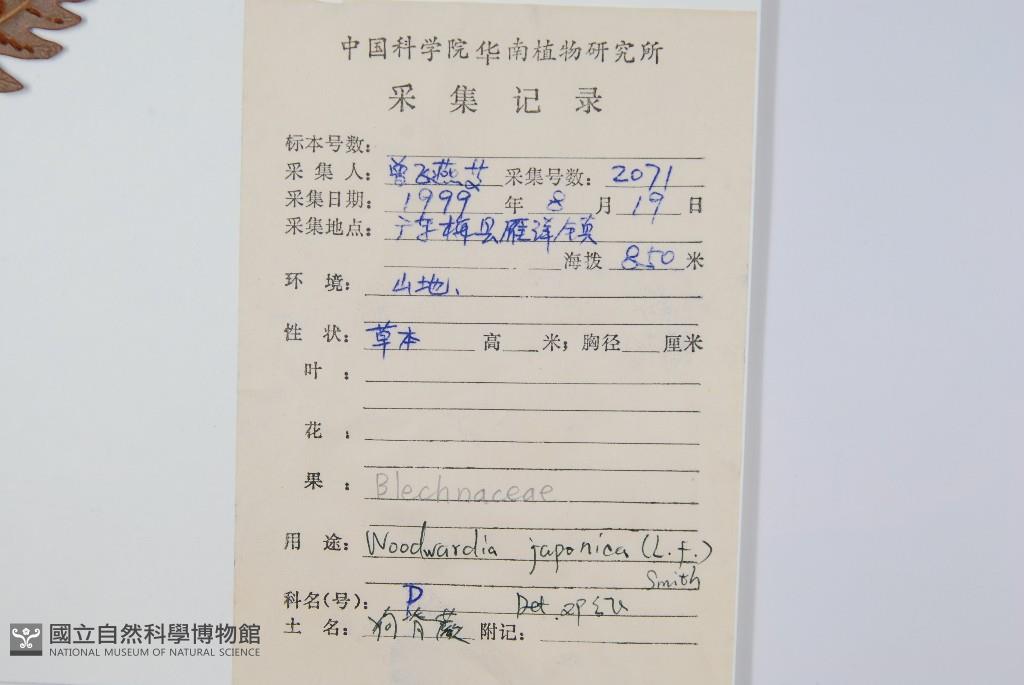 中国科学院华南植物研究所
采集记录
标本号数：
采集人：曾飞燕 采集号数：2071
采集日期：1999年8月19日
采集地点：广东梅县雁洋镇
海拨 850 米
环境：山地、
性状：草本 高 米；胸径 厘米
叶：
花：
果：Blechnaceae
用途：Woodwardia japonica (L.f.)
Smith
科名(号)：P Det.
土名：狗脊蕨 附记：
國立自然科學博物館
NATIONAL MUSEUM OF NATURAL SCIENCE